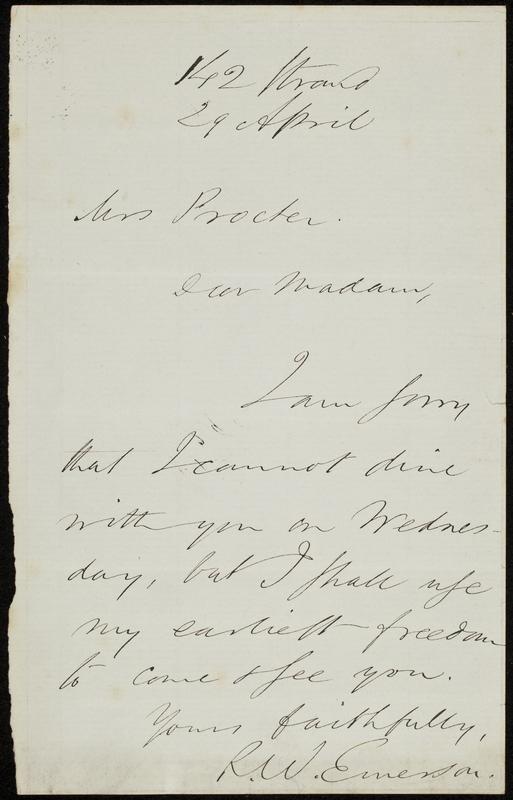 142 Strand
29 April
Mrs Procter.
Dear Madam,
I am sorry
that I cannot dine
with you on Wednes-
day, but I shall use
my earliest freedom
to come & see you.
Yours faithfully,
R.W. Emerson.